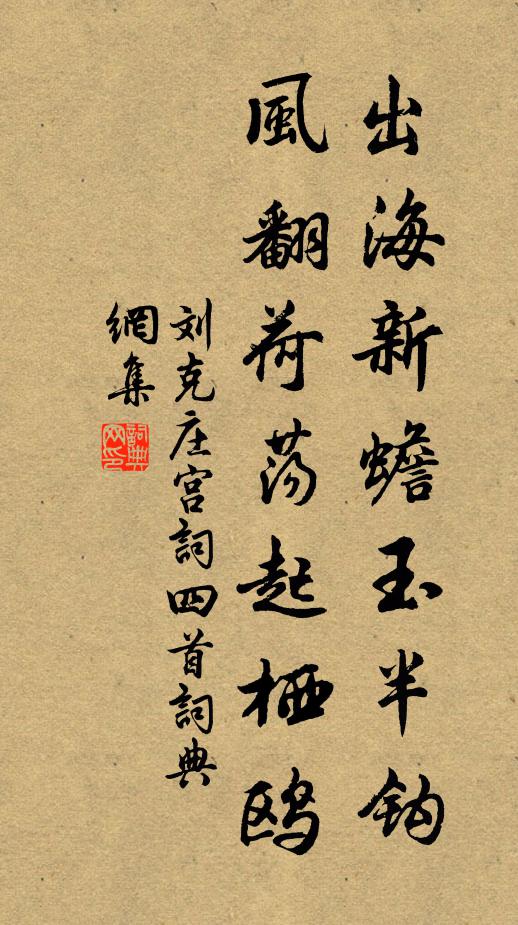 出海新蟾玉半钩
風翻荷荡起栖鸥
刘克庄宫詞四首詞典
網集
詞典网印